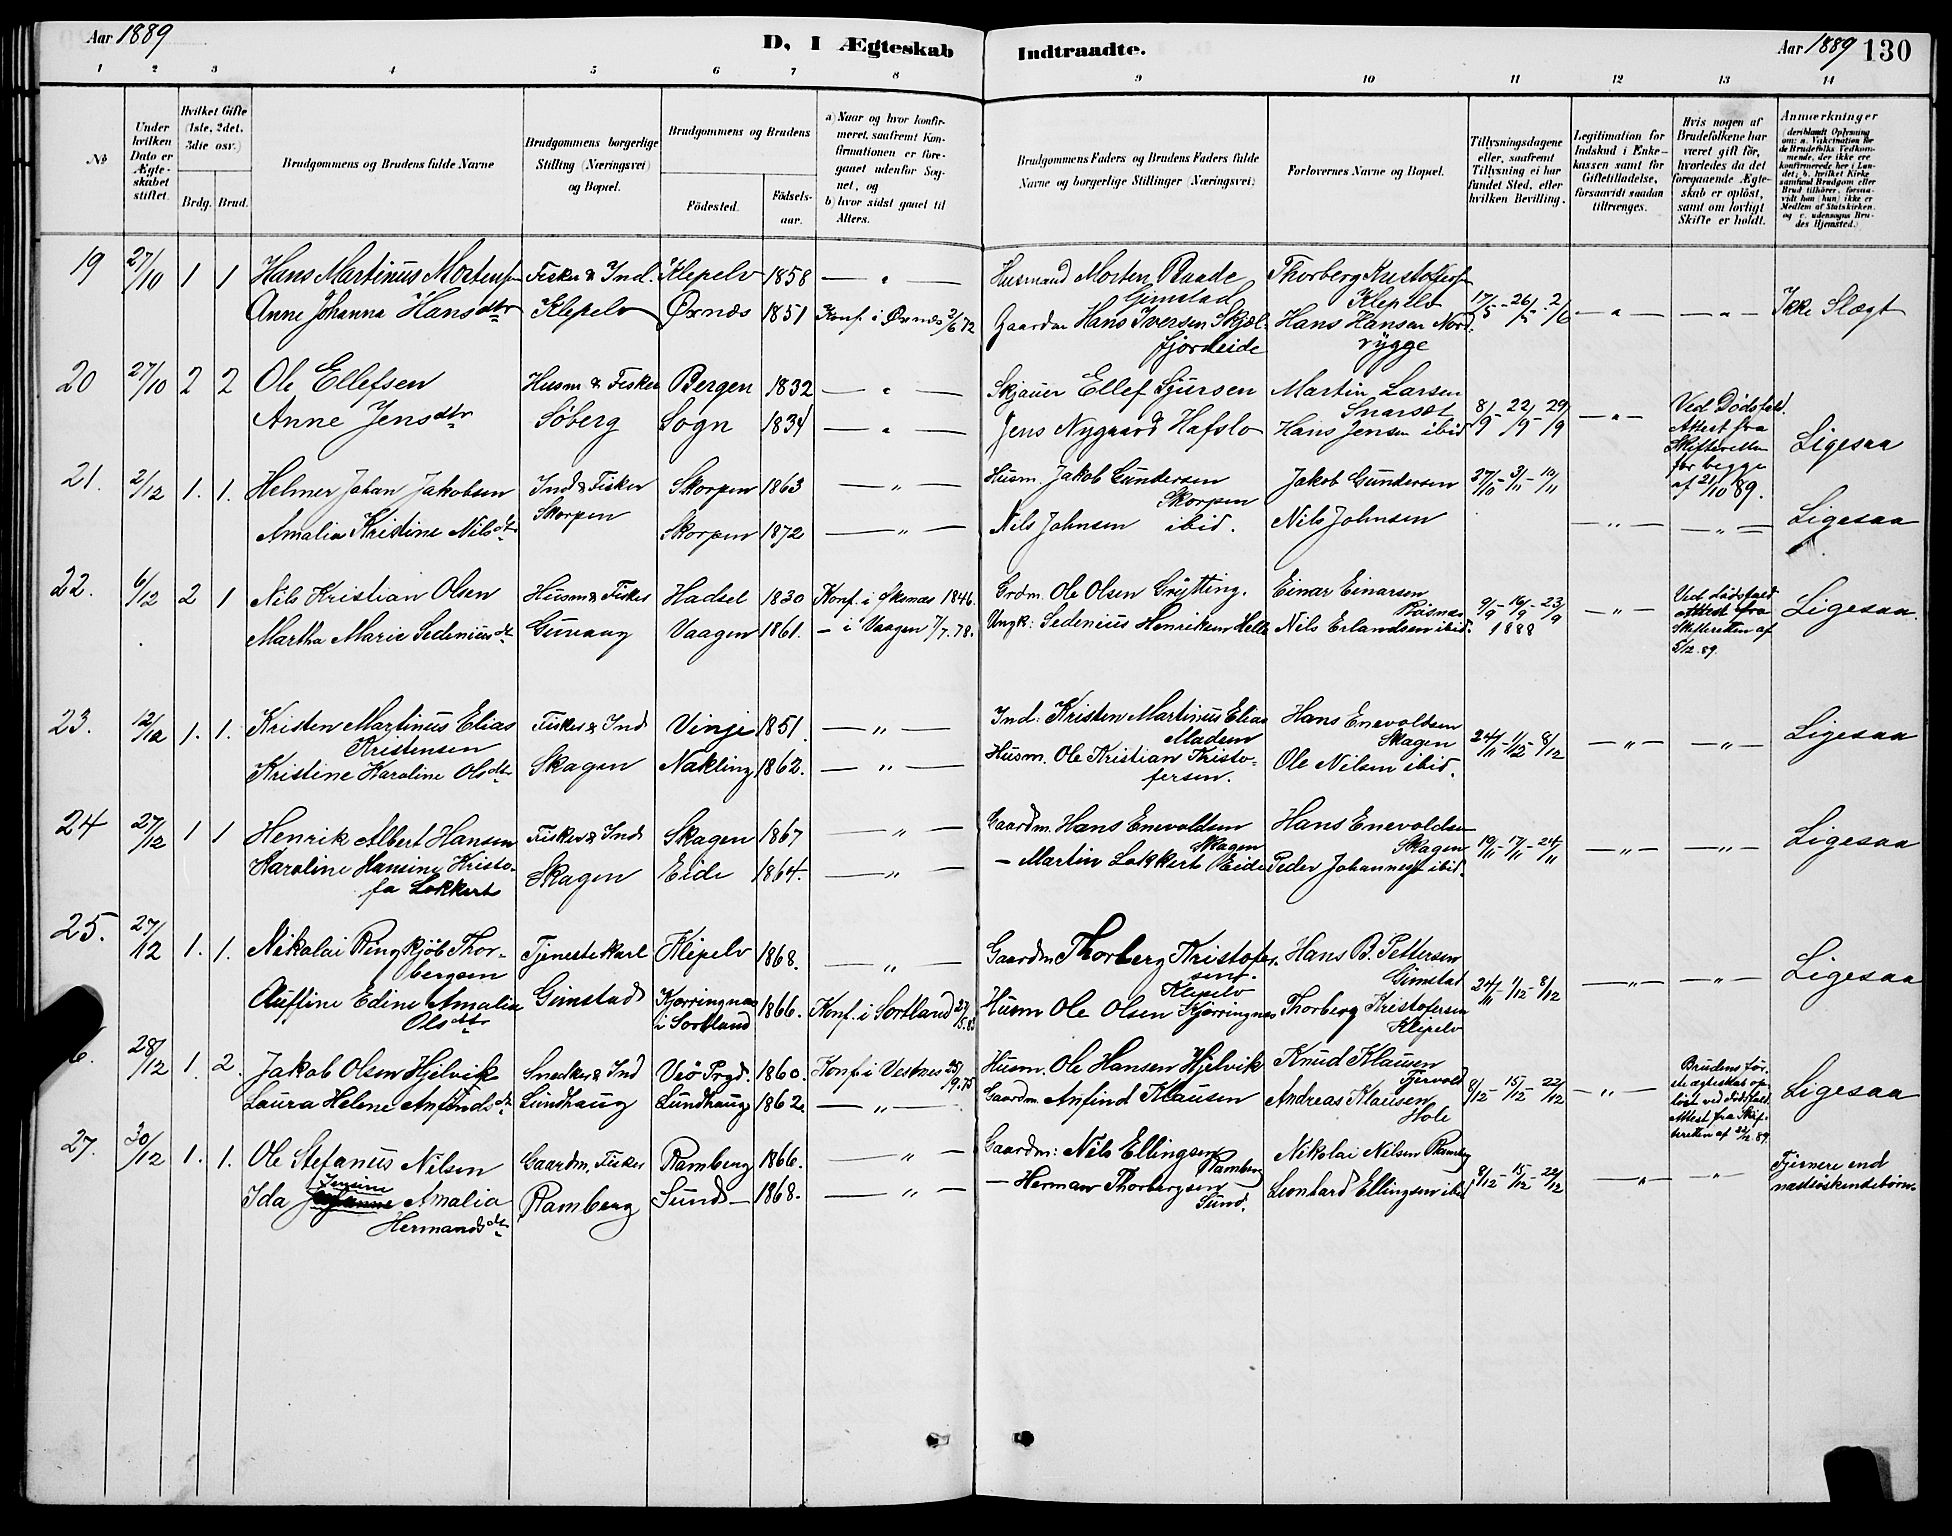 Aar 1889
D, I Ægteskab Indtraadte.
Aar 1889 130
1 2 3 4 5 6 7 8 9 10 11 12 13 14
No
Under hvilken Dato er Ægteskabet stiftet.
Hvilket Gifte (1ste, 2det, 3die osv.)
Brdg. Brud.
Brudgommens og Brudens fulde Navne
Brudgommens borgerlige Stilling (Næringsvei) og Bopæl.
Brudgommens og Brudens
Fødested.
Fødselsaar.
a) Naar og hvor konfirmeret, saafremt Konfirmationen er foregaaet udenfor Sognet, og
b) hvor sidst gaaet til Alters.
Brudgommens Faders og Brudens Faders fulde Navne og borgerlige Stillinger (Næringsvei)
Forlovernes Navne og Bopæl.
Tillysningsdagene eller, saafremt Tillysning ei har fundet Sted, efter hvilken Bevilling.
Legitimation for Indskud i Enkekassen samt for Giftetilladelse, forsaavidt saadan tiltrænges.
Hvis nogen af Brudefolkene har været gift før, hvorledes da det foregaaende Ægteskab er opløst, samt om lovligt Skifte er holdt.
Anmerkninger (deriblandt Oplysning om: a. Vakcination for de Brudefolks Vedkommende, der ikke ere konfirmerede her i Landet; b. hvilket Kirkesamfund Brudgom eller Brud tilhører, forsaavidt han (hun) ikke er Medlem af Statskirken, og c. udensogns Brudes Hjemsted.)
19 27/10 1 1 Hans Martinus Mortensen Fisker & Ind. Klepelv 1858 — " — Husmand Morten Raade Gimstad Thorberg Kristofersen Klepelv 17/5 - 26/5 - 2/6 — " — — " — Ikke Slægt
Anne Johanna Hansdtr Klepelv Øxnæs 1851 Konf. i Øxnæs 2/6 72 Gaardm Hans Iversen Skjælfjordeide Hans Hansen Nordrygge
20 27/10 2 2 Ole Ellefsen Husm & Fisker Bergen 1832 — " — Skjauer Ellef Sjursen Martin Larsen Snarsæt 8/9 - 22/9 - 29/9 — " — Ved Dødsfald. Attest fra Skifteretten for begge af 21/10 89. Ligesaa
Anne Jensdtr Søberg Sogn 1834 — " — Jens Nygaard Hafslo Hans Jensen ibid
21. 2/12 1. 1. Helmer Johan Jakobsen Ind & Fisker Skorpen Skorpen 1863 — " — Husm. Jakob Gundersen Skorpen Jakob Gundersen 27/10 - 3/11 - 10/11 — " — — " — Ligesaa
Amalia Kristine Nilsdtr Skorpen 1872 — " — Nils Johnsen ibid. Nils Johnsen
22. 6/12 2 1 Nils Kristian Olsen Husm & Fisker Hadsel 1830 Konf. i Øksnæs 1846. Grdm. Ole Olsen Grytting. Einar Einarsen 9/9 - 16/9 - 23/9 1888 — " — Ved Dødsfald Attest fra Skifteretten af 5/12. 89. Ligesaa.
Martha Marie Sedeniusdtr Vaagen 1861. — i Vaagen 7/7.78. Ungk: Sedenius Henriksen Helle Nils Erlandsen ibid.
23. 12/12 1. 1. Kristen Martinus Elias Kristensen Fisker & Ind Vinje 1851. — " — Ind: Kristen Martinus Elias Madsen Hans Enevoldsen Skagen 24/11 - 1/12 - 8/12 — " — — " — Ligesaa
Kristine Karoline Olsdtr Skagen Nakling 1862. — " — Husm. Ole Kristian Kristofersen. Ole Nilsen ibid.
24 27/12 1 1 Henrik Albert Hansen Fisker & Ind Skagen 1867 — " — Gaardm. Hans Enevoldsen Skagen Hans Enevoldsen Skagen 10/11 - 17/11 - 24/11 — " — — " — Ligesaa
Karoline Hansine Kristofa Lokkert Skagen Eide 1864. — " — — Martin Lokkert Eide Peder Johannesen ibid.
25. 27/12 1. 1. Nikolai Ringkjøb Thorbergsen Tjenestekarl Klepelv 1868. — " — Gaardm Thorberg Kristofersen. Klepelv Hans B. Pettersen Gimstad 24/11 - 1/12 - 8/12 — " — — " — Ligesaa
Edine Amalia Olsdtr Gimstad Kjørringnæs i Sortland 1866. Konf. i Sortland Husm Ole Olsen Kjørringnæs Thorberg Kristofersen Klepelv
6. 28/12 1. 2. Jakob Olsen Hjelvik Snedker & Ind Veø Prgd. 1860. Konf. i Vestnes 25/9.75 Husm. Ole Hansen Hjelvik Knud Klausen Tjervold 8/12 - 15/12 - 22/12 — " — Brudens første egteskab opløst ved Dødsfald. Attest fra Skifteretten af 22/12 89. Ligesaa
Laura Helene Anfindsdtr Lundhaug Lundhaug 1862. — " — Gaardm. Anfind Klausen Andreas Klausen Hole
27. 30/12 1. 1. Ole Stefanus Nilsen Gaardm, Fisker Ramberg 1866. — " — Gaardm: Nils Ellingsen Ramberg Nikolai Nilsen Ramberg 8/12 - 15/12 - 22/12 — " — — " — Fjernere end næstsøskendebørn.
Ida Jensine Amalia Hermansdtr Ramberg Sund — 1868. — " — — Herman Thorbergsen Sund. Leonhard Ellingsen ibid